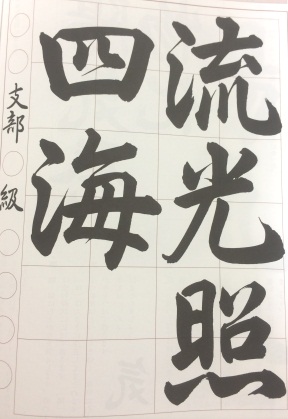 流光照
四海
支部○級○○○○